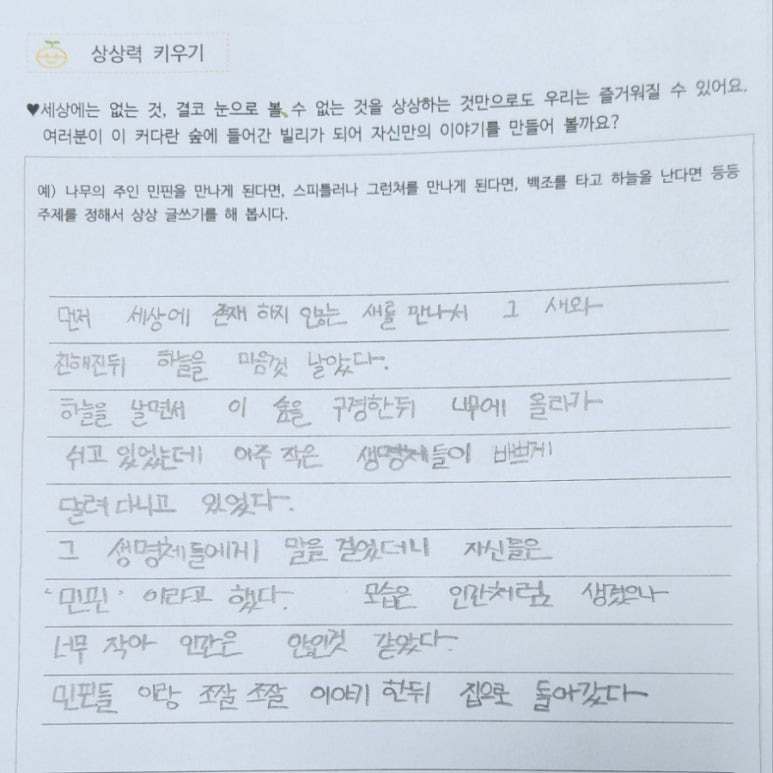 상상력 키우기
♥세상에는 없는 것, 결코 눈으로 볼 수 없는 것을 상상하는 것만으로도 우리는 즐거워질 수 있어요.
여러분이 이 커다란 숲에 들어간 빌리가 되어 자신만의 이야기를 만들어 볼까요?
예) 나무의 주인 민핀을 만나게 된다면, 스피틀러나 그런쳐를 만나게 된다면, 백조를 타고 하늘을 난다면 등등
주제를 정해서 상상 글쓰기를 해 봅시다.
먼저 세상에 존재 하지 않는 새를 만나서 그 새와
친해진뒤 하늘을 마음껏 날았다.
하늘을 날면서 이 숲을 구경한뒤 나무에 올라가
쉬고 있었는데 아주 작은 생명체들이 바쁘게
달려 다니고 있었다.
그 생명체들에게 말을 걸었더니 자신들은
"민핀" 이라고 했다. 모습은 인간처럼 생겼으나
너무 작아 인간은 않인것 같았다.
민핀들 이랑 조잘 조잘 이야기 한뒤 집으로 돌아갔다